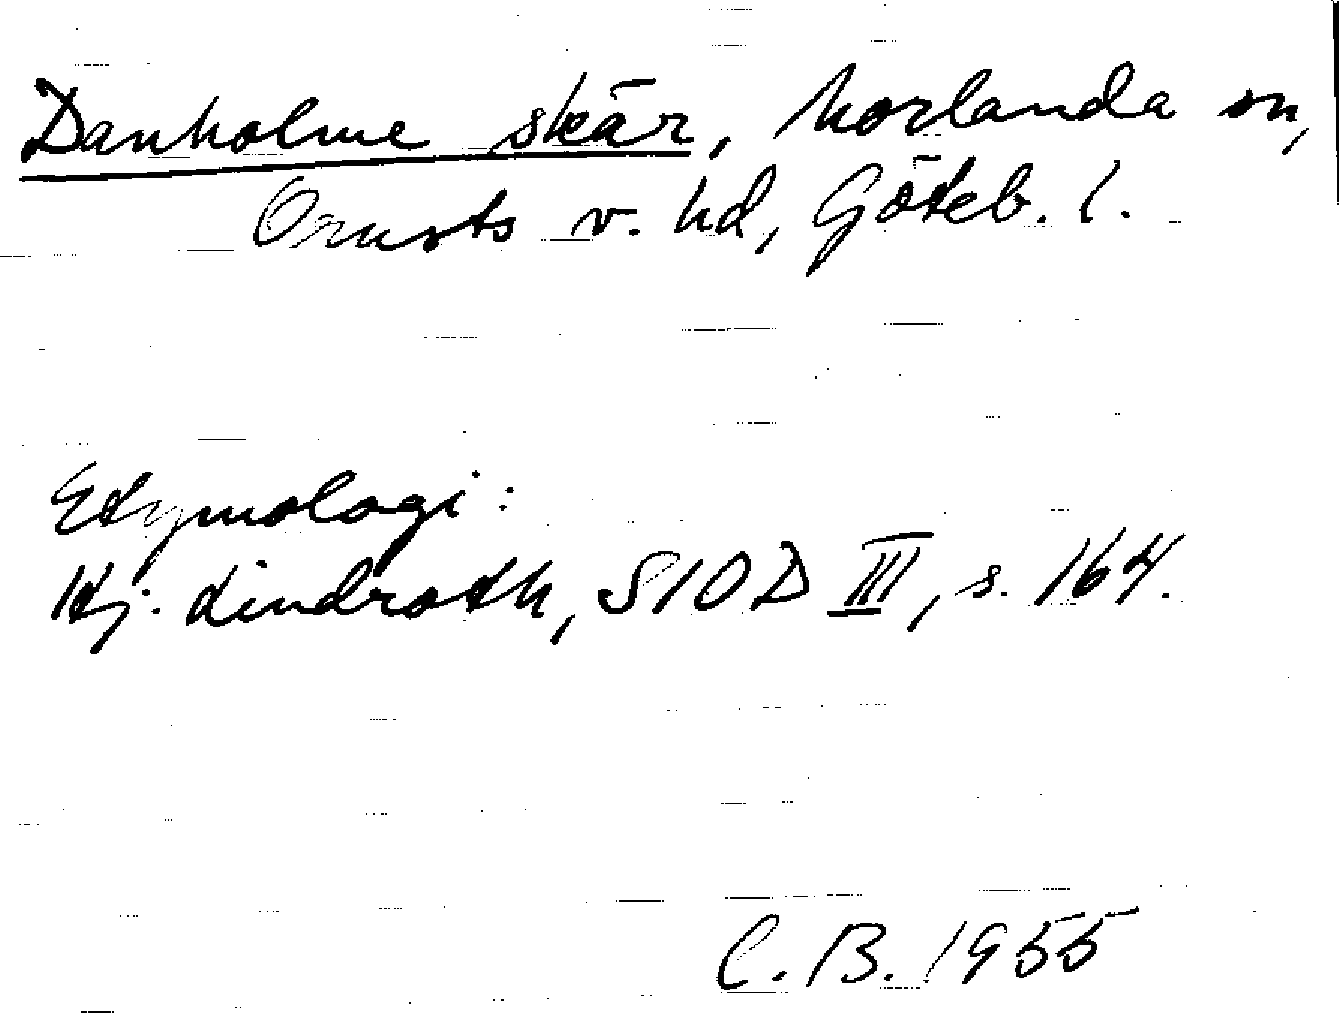 Danholme skär, Morlanda sn,
Orusts v. hd, Göteb. l.
Etymologi:
Hj. Lindroth, SIOD III, s. 164.
C. B. 1955